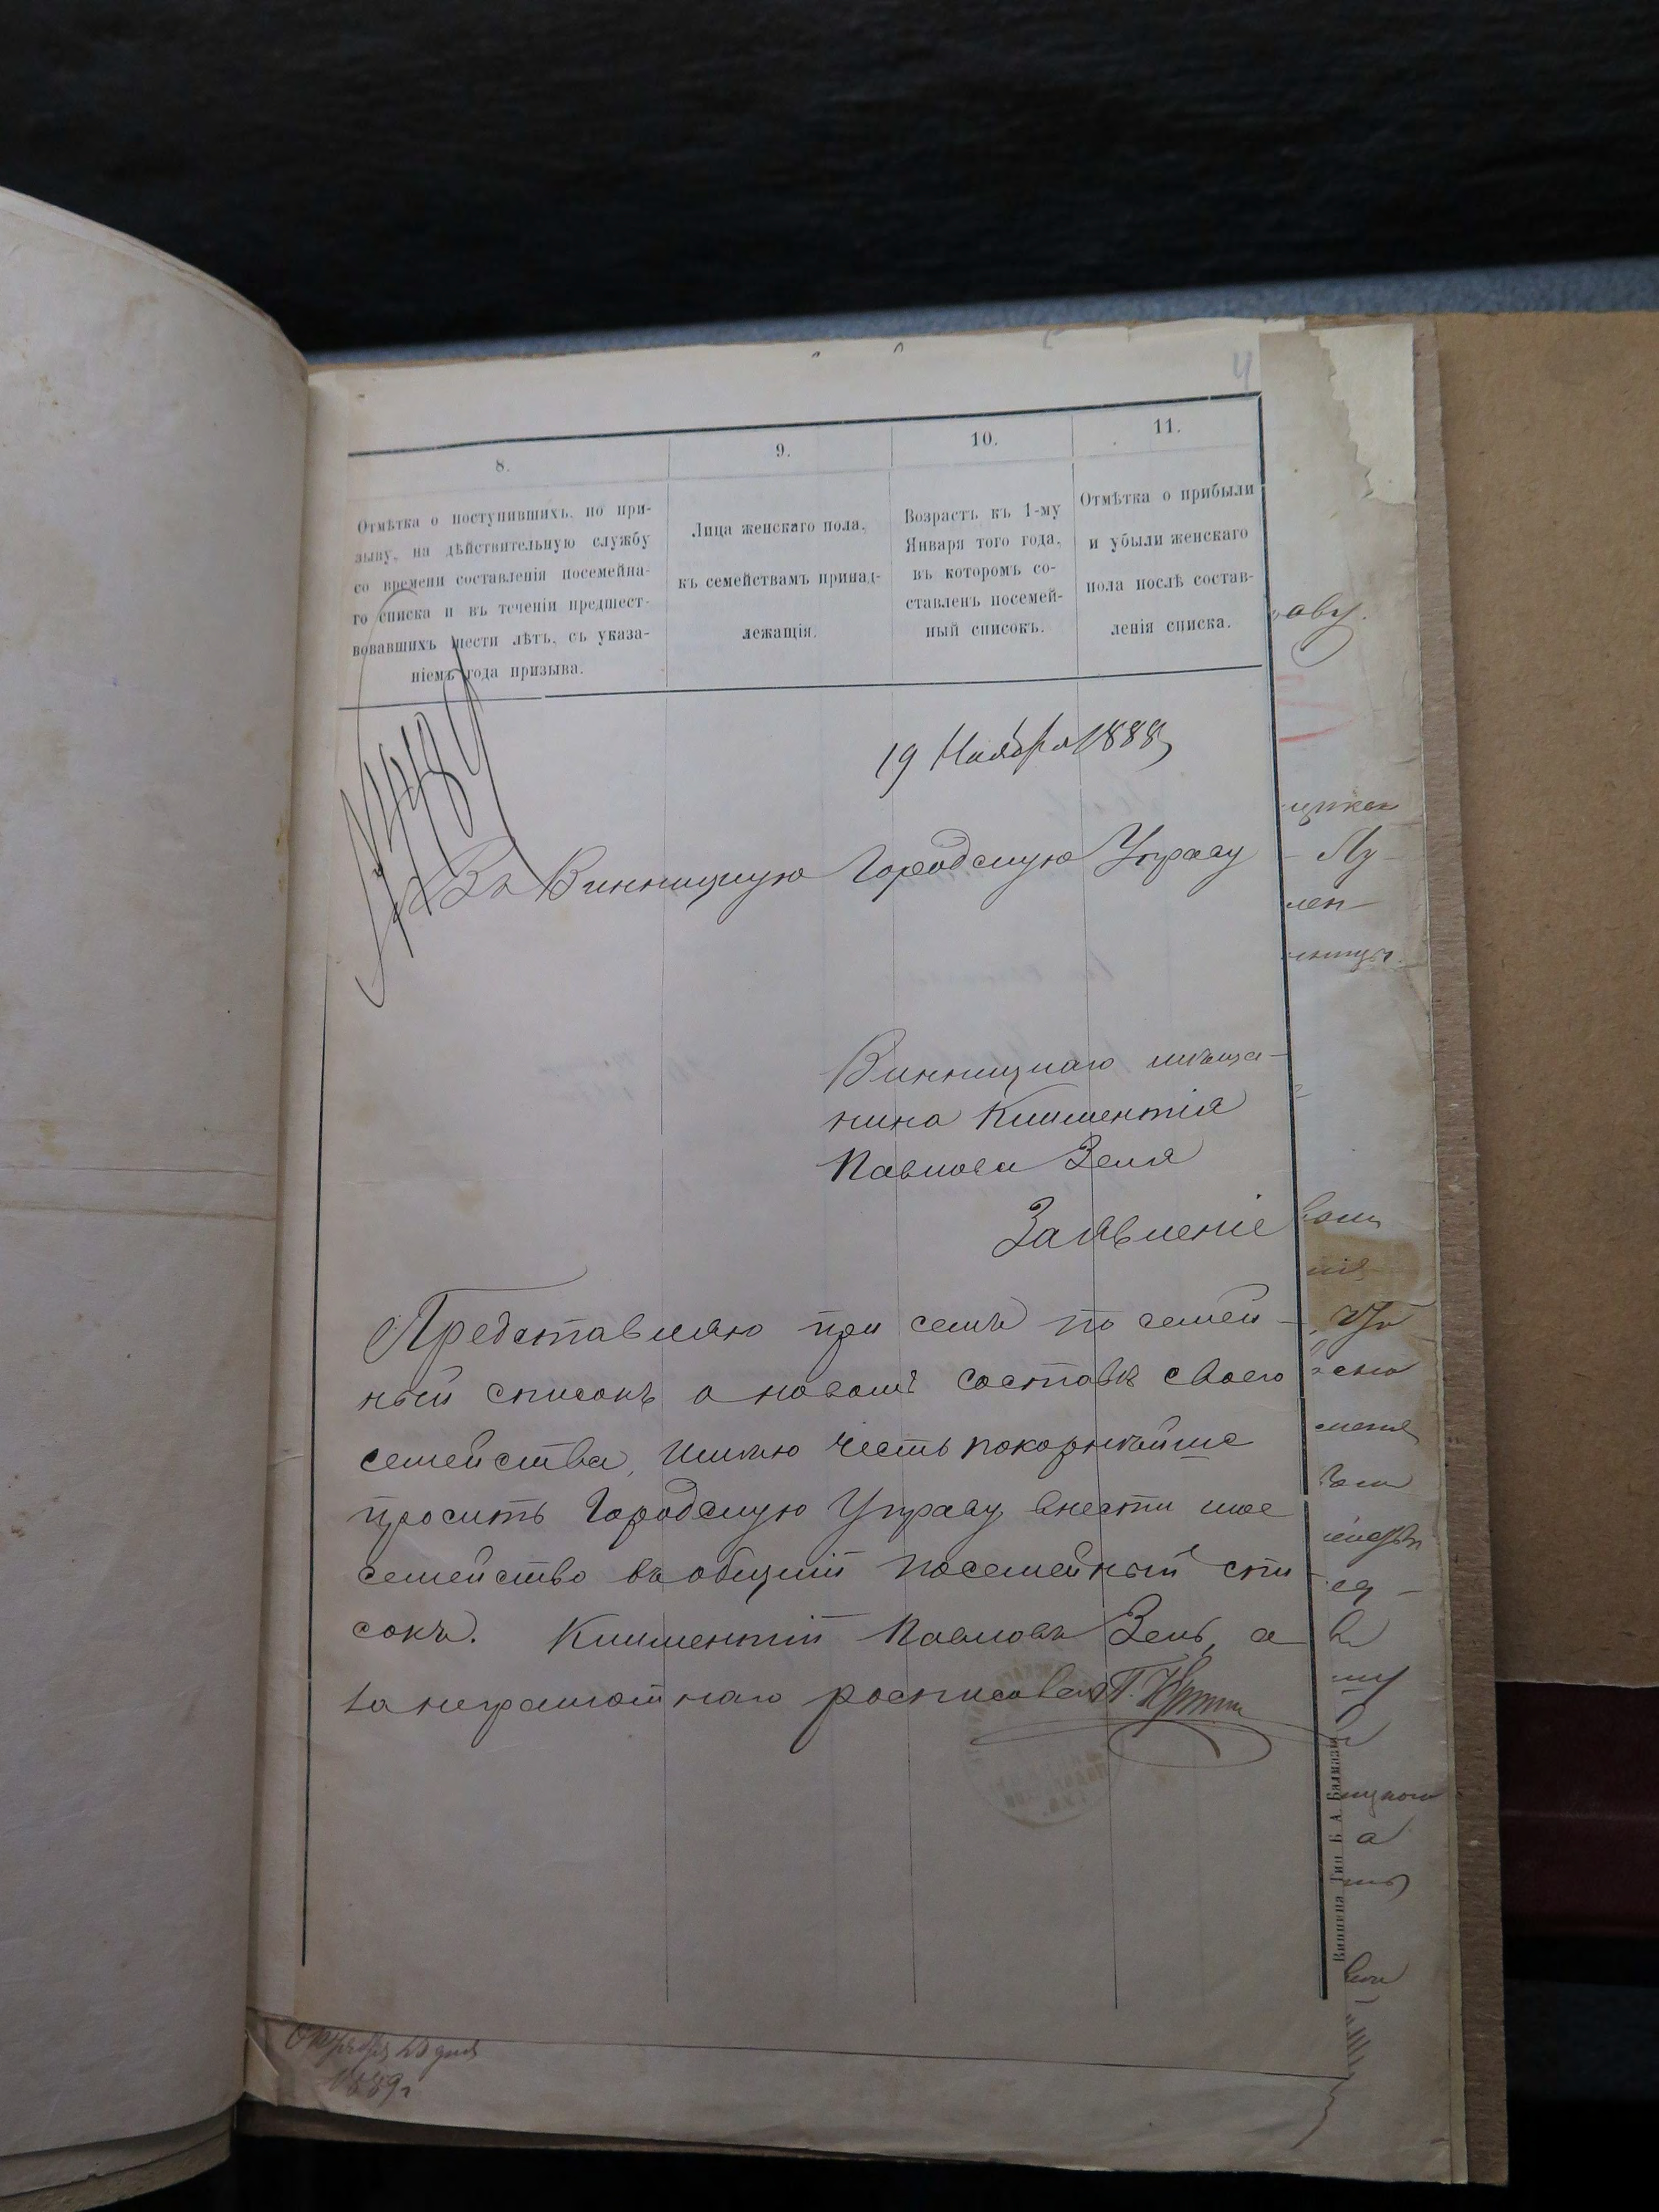 4
8.
9.
10.
11.
Отмѣтка о поступившихъ, по при-
зыву, на дѣйствительную службу
со времени составленія посемейна-
го списка и въ теченіи предшест-
вовавшихъ шести лѣтъ, съ указа-
ніемъ года призыва.
Лица женскаго пола,
къ семействамъ принад-
лежащія.
Возрастъ къ 1-му
Января того года,
въ которомъ со-
ставленъ посемей-
ный списокъ.
Отмѣтка о прибыли
и убыли женскаго
пола послѣ состав-
ленія списка.
19 Ноября 1888
Въ Винницкую Городскую Управу
Винницкаго мѣща-
нина Климентія
Павлова Зеля
Заявленіе
Представляю при семъ по семей-
ный списокъ о новомъ составѣ своего
семейства, имѣю честь покорнѣйше
просить Городскую Управу внести мое
семейство въ общій посемейный спи
сокъ. Климентій Павловъ Зель, а
за неграмотнаго росписался
Винница Тип Б А
1889г